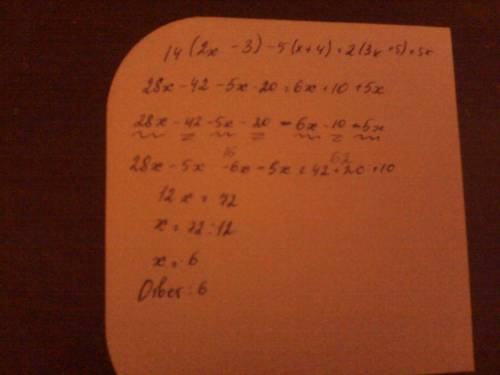 14 (2x - 3) - 5 (x + 4) = 2 (3x + 5) + 5x
28x - 42 - 5x - 20 = 6x + 10 + 5x
28x - 42 - 5x - 20 - 6x - 10 - 5x
16 62
28x - 5x - 6x - 5x = 42 + 20 + 10
12x = 72
x = 72 : 12
x = 6
Ответ: 6